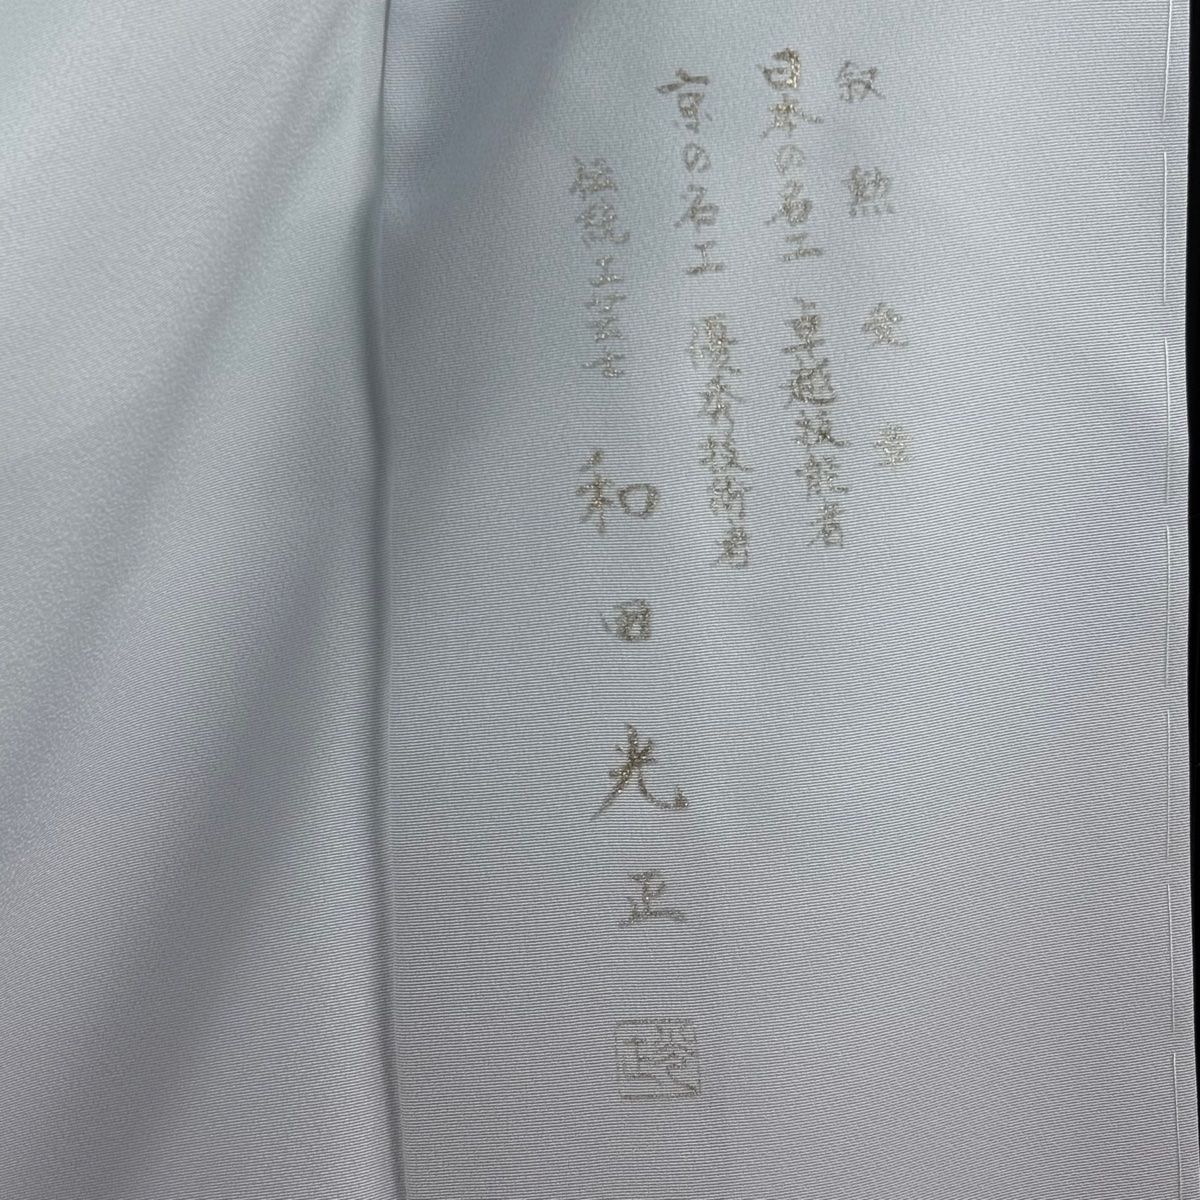 叙勲受章
日本の名工 卓越技能者
京の名工 優秀技術者
伝統工芸士 和田光正